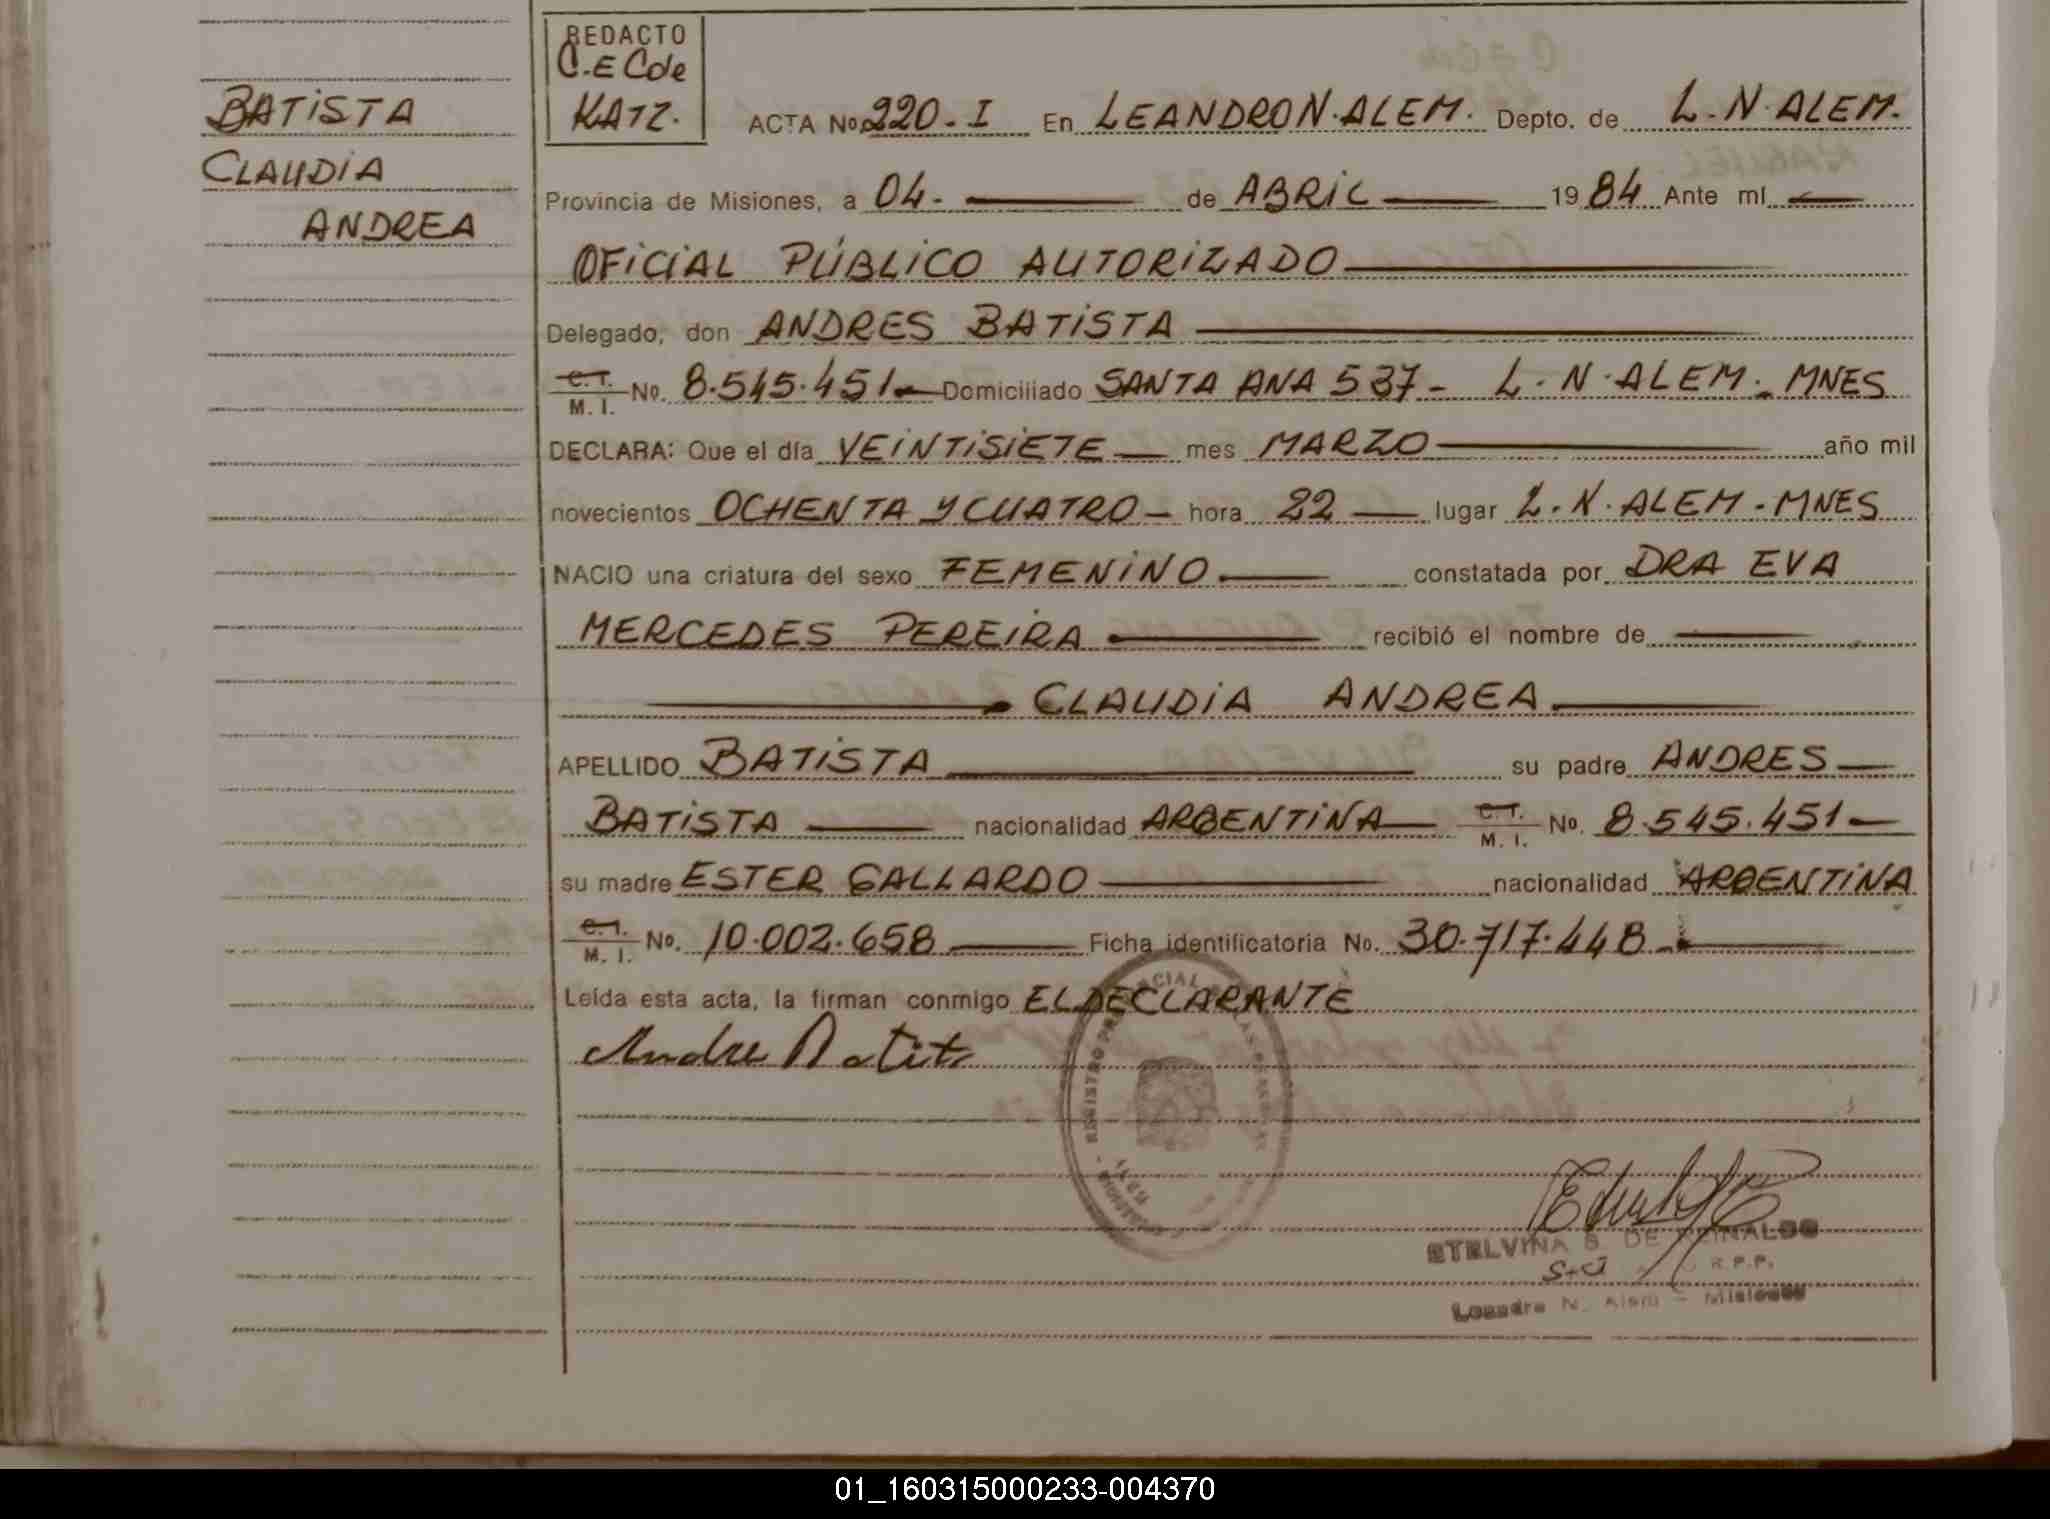 REDACTO
C.E C de
KATZ.
BATISTA
CLAUDIA
ANDREA
ACTA No. 220-I En LEANDRO N. ALEM. Depto. de L.N. ALEM.
Provincia de Misiones, a 04.- de ABRIL 1984 Ante mí
OFICIAL PÚBLICO AUTORIZADO
Delegado, don ANDRES BATISTA
C.I. M.I. No. 8.545.451 Domiciliado SANTA ANA 537 - L.N. ALEM. MNES
DECLARA: Que el día VEINTISIETE mes MARZO año mil
novecientos OCHENTA Y CUATRO - hora 22 lugar L.N. ALEM - MNES
NACIO una criatura del sexo FEMENINO constatada por DRA EVA
MERCEDES PEREIRA recibió el nombre de
CLAUDIA ANDREA
APELLIDO BATISTA su padre ANDRES
BATISTA nacionalidad ARGENTINA C.I. M.I. No. 8.545.451
su madre ESTER GALLARDO nacionalidad ARGENTINA
C.I. M.I. No. 10.002.658 Ficha identificatoria No. 30.717.448
Leída esta acta, la firman conmigo EL DECLARANTE
Andre Batista
ETELVINA B. DE REINALDO
R.P.P.
Leandro N. Alem - Misiones
01_160315000233-004370